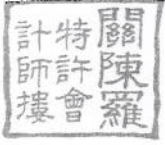 關陳羅
特許會
計師樓